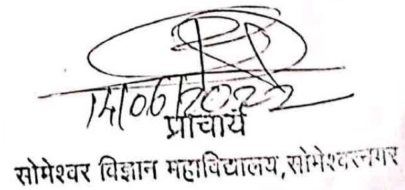 14/06/2022
प्राचार्य
सोमेश्वर विज्ञान महाविद्यालय,सोमेश्वरनगर